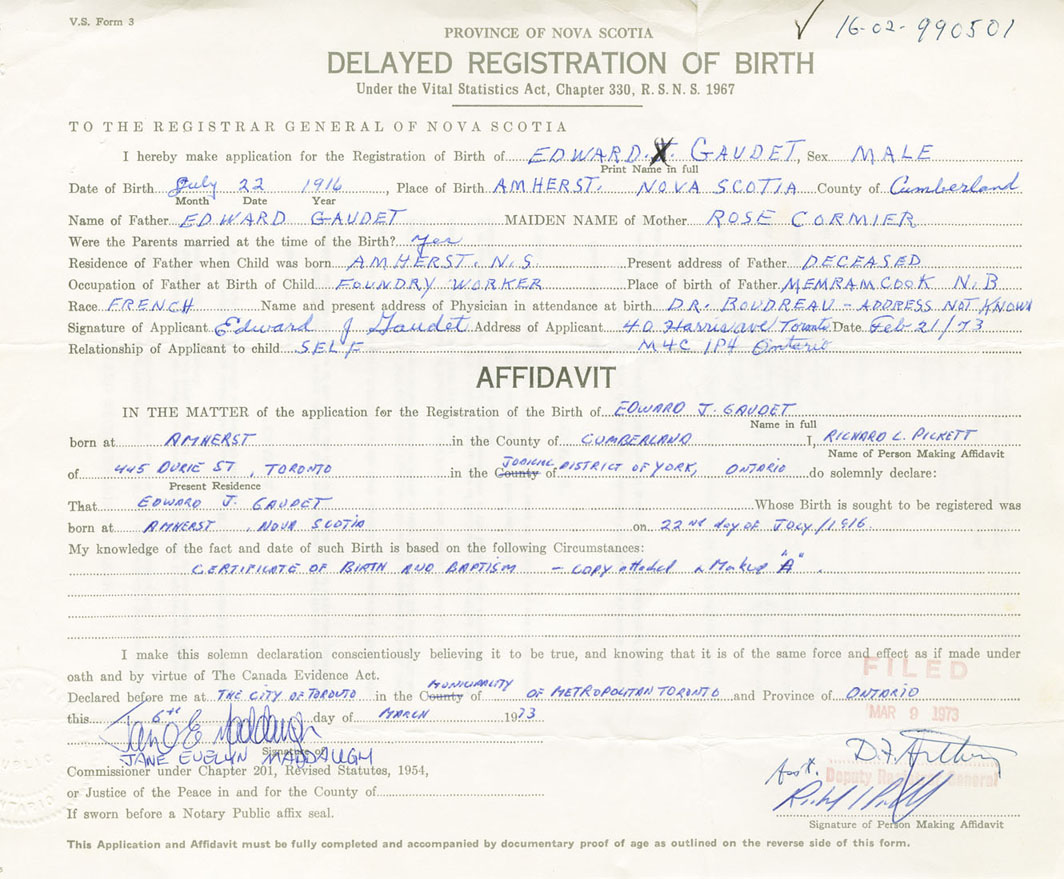 V.S. Form 3
✓ 16-02-990501
PROVINCE OF NOVA SCOTIA
DELAYED REGISTRATION OF BIRTH
Under the Vital Statistics Act, Chapter 330, R. S. N. S. 1967
TO THE REGISTRAR GENERAL OF NOVA SCOTIA
I hereby make application for the Registration of Birth of EDWARD. GAUDET, Sex MALE
Print Name in full
Date of Birth July 22 1916, Place of Birth AMHERST, NOVA SCOTIA County of Cumberland
Month Date Year
Name of Father EDWARD GAUDET MAIDEN NAME of Mother ROSE CORMIER
Were the Parents married at the time of the Birth? yes
Residence of Father when Child was born AMHERST. N.S. Present address of Father DECEASED
Occupation of Father at Birth of Child FOUNDRY WORKER Place of birth of Father MEMRAMCOOK N.B
Race FRENCH Name and present address of Physician in attendance at birth DR. BOUDREAU - ADDRESS NOT KNOWN
Signature of Applicant Edward J Gaudet Address of Applicant 40 Harris ave/Toronto Date Feb 21/73
Relationship of Applicant to child SELF M4C 1P4 Ontario
AFFIDAVIT
IN THE MATTER of the application for the Registration of the Birth of EDWARD J. GAUDET
Name in full
born at AMHERST in the County of CUMBERLAND I, RICHARD L. PICKETT
Name of Person Making Affidavit
of 445 DURIE ST, TORONTO in the County of JUDICIAL DISTRICT OF YORK, ONTARIO do solemnly declare:
Present Residence
That EDWARD J. GAUDET Whose Birth is sought to be registered was
born at AMHERST, NOVA SCOTIA on 22nd day of JULY/1916.
My knowledge of the fact and date of such Birth is based on the following Circumstances:
CERTIFICATE OF BIRTH AND BAPTISM - COPY attached & Marked "A".
I make this solemn declaration conscientiously believing it to be true, and knowing that it is of the same force and effect as if made under
oath and by virtue of The Canada Evidence Act.
FILED
Declared before me at THE CITY OF TORONTO in the County of MUNICIPALITY OF METROPOLITAN TORONTO and Province of ONTARIO
this 6th day of MARCH 1973
MAR 9 1973
Signature of
JANE EVELYN MADDAUGH
Commissioner under Chapter 201, Revised Statutes, 1954,
Asst. Deputy Registrar General
or Justice of the Peace in and for the County of
If sworn before a Notary Public affix seal.
Signature of Person Making Affidavit
This Application and Affidavit must be fully completed and accompanied by documentary proof of age as outlined on the reverse side of this form.